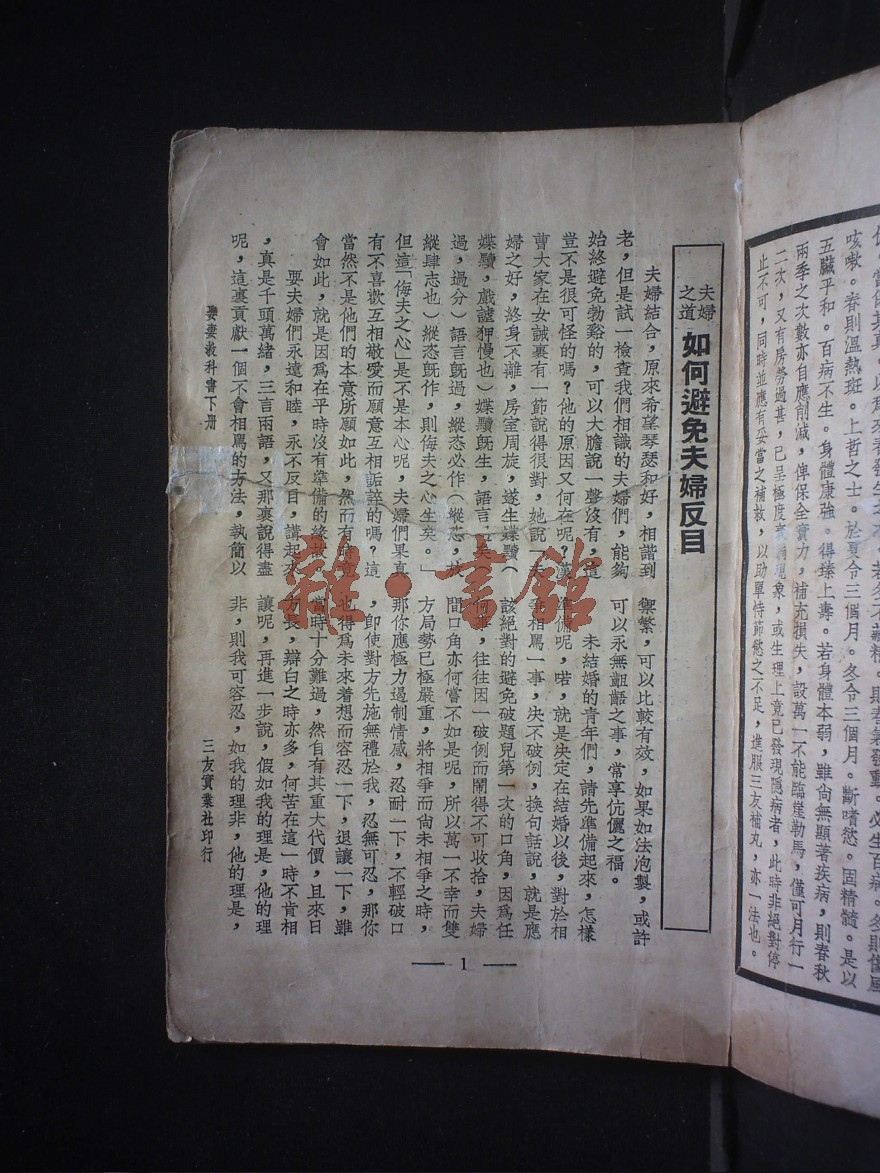 以為來春發生之本。若冬不藏精。則春氣發動。必生百病。冬則傷風
咳嗽。春則溫熱斑。上哲之士。於夏令三個月。冬令三個月。斷嗜慾。固精髓。是以
五臟平和。百病不生。身體康強。得臻上壽。若身體本弱，雖尙無顯著疾病，則春秋
兩季之次數亦自應削減，俾保全實力，補充損失，設萬一不能臨崖勒馬，僅可月行一
二次，又有房勞過甚，已呈極度衰弱現象，或生理上竟已發現隱病者，此時非絕對停
止不可，同時並應有妥當之補救，以助單恃節慾之不足，進服三友補丸，亦一法也。
夫婦之道
如何避免夫婦反目
夫婦結合，原來希望琴瑟和好，相諧到
老，但是試一檢查我們相識的夫婦們，能夠
始終避免勃谿的，可以大膽說一聲沒有，這
豈不是很可怪的嗎？他的原因又何在呢？漢
曹大家在女誡裏有一節說得很對，她說「夫
婦之好，終身不離，房室周旋，遂生媟黷（
媟黷，戲謔狎慢也）媟黷旣生，語言過矣（
過，過分）語言旣過，縱恣必作（縱恣，放
縱肆志也）縱恣旣作，則侮夫之心生矣。」
但這「侮夫之心」是不是本心呢，夫婦們果真
有不喜歡互相敬愛而願意互相詬誶的嗎？這
當然不是他們的本意所願如此，然而有時
會如此，就是因爲在平時沒有準備的緣故。
要夫婦們永遠和睦，永不反目，講起來
，真是千頭萬緖，三言兩語，又那裏說得盡
呢，這裏貢獻一個不會相罵的方法，執簡以
禦繁，可以比較有效，如果如法泡製，或許
可以永無齟齬之事，常享伉儷之福。
未結婚的青年們，請先準備起來，怎樣
準備呢，喏，就是決定在結婚以後，對於相
爭相罵一事，矢不破例，換句話說，就是應
該絕對的避免破題兒第一次的口角，因爲任
何事，往往因一破例而鬧得不可收拾，夫婦
間口角亦何嘗不如是呢，所以萬一不幸而雙
方局勢已極嚴重，將相爭而尙未相爭之時，
那你應極力遏制情感，忍耐一下，不輕破口
，卽使對方先施無禮於我，忍無可忍，那你
也得爲未來着想而容忍一下，退讓一下，雖
當時十分難過，然自有其重大代價，且來日
方長，辯白之時亦多，何苦在這一時不肯相
讓呢，再進一步說，假如我的理是，他的理
非，則我可容忍，如我的理非，他的理是，
娶妻教科書下册
三友實業社印行
1
雜·書館